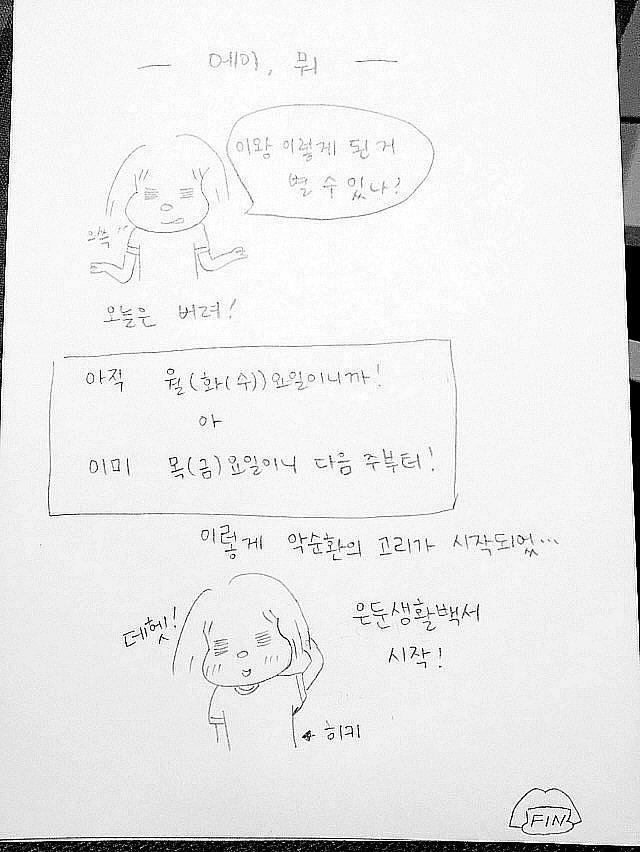 — 에이, 뭐 —
이왕 이렇게 된 거
별 수 있나?
으쓱
오늘은 버려!
아직 월(화(수))요일이니까!
아
이미 목(금)요일이니 다음 주부터!
이렇게 악순환의 고리가 시작되었...
데헷!
은둔생활백서
시작!
히키
FIN